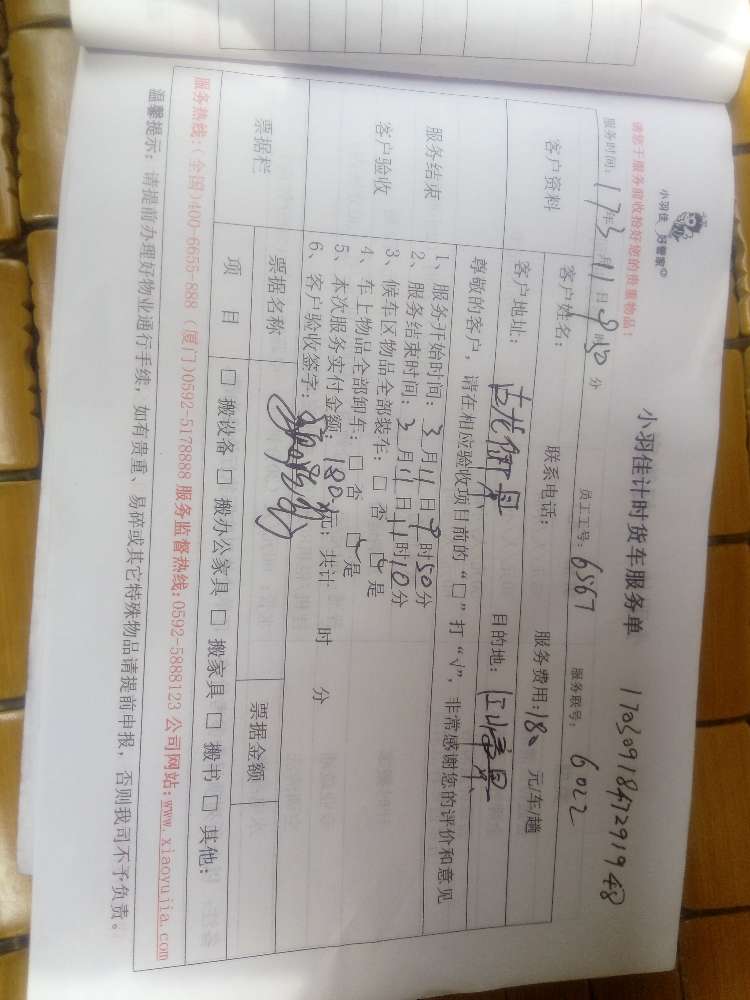 小羽佳 好管家
小羽佳计时货车服务单 1703091847291948
请您于服务前收拾好您的贵重物品！
服务时间：17年3月11日9时50分 员工工号：6567 服务联号：6022
客户资料 客户姓名： 联系电话： 服务费用：180元/车/趟
客户地址： 古龙御景 目的地：
尊敬的客户，请在相应验收项目前的“□”打“√”，非常感谢您的评价和意见
服务结束
客户验收
1、服务开始时间：3月11日9时50分
2、服务结束时间：3月11日11时10分
3、候车区物品全部装车：□ 否 ☑ 是
4、车上物品全部卸车：□ 否 ☑ 是
5、本次服务实付金额：180元；共计 时 分
6、客户验收签字：
票据栏 票据名称 票据金额
项目 □ 搬设备 □ 搬办公家具 □ 搬家具 □ 搬书 □ 其他：
服务热线：(全国)400-6655-888 (厦门)0592-5178888 服务监督热线：0592-5888123 公司网站：www.xiaoyujia.com
温馨提示：请提前办理好物业通行手续，如有贵重、易碎或其它特殊物品请提前申报，否则我司不予负责。